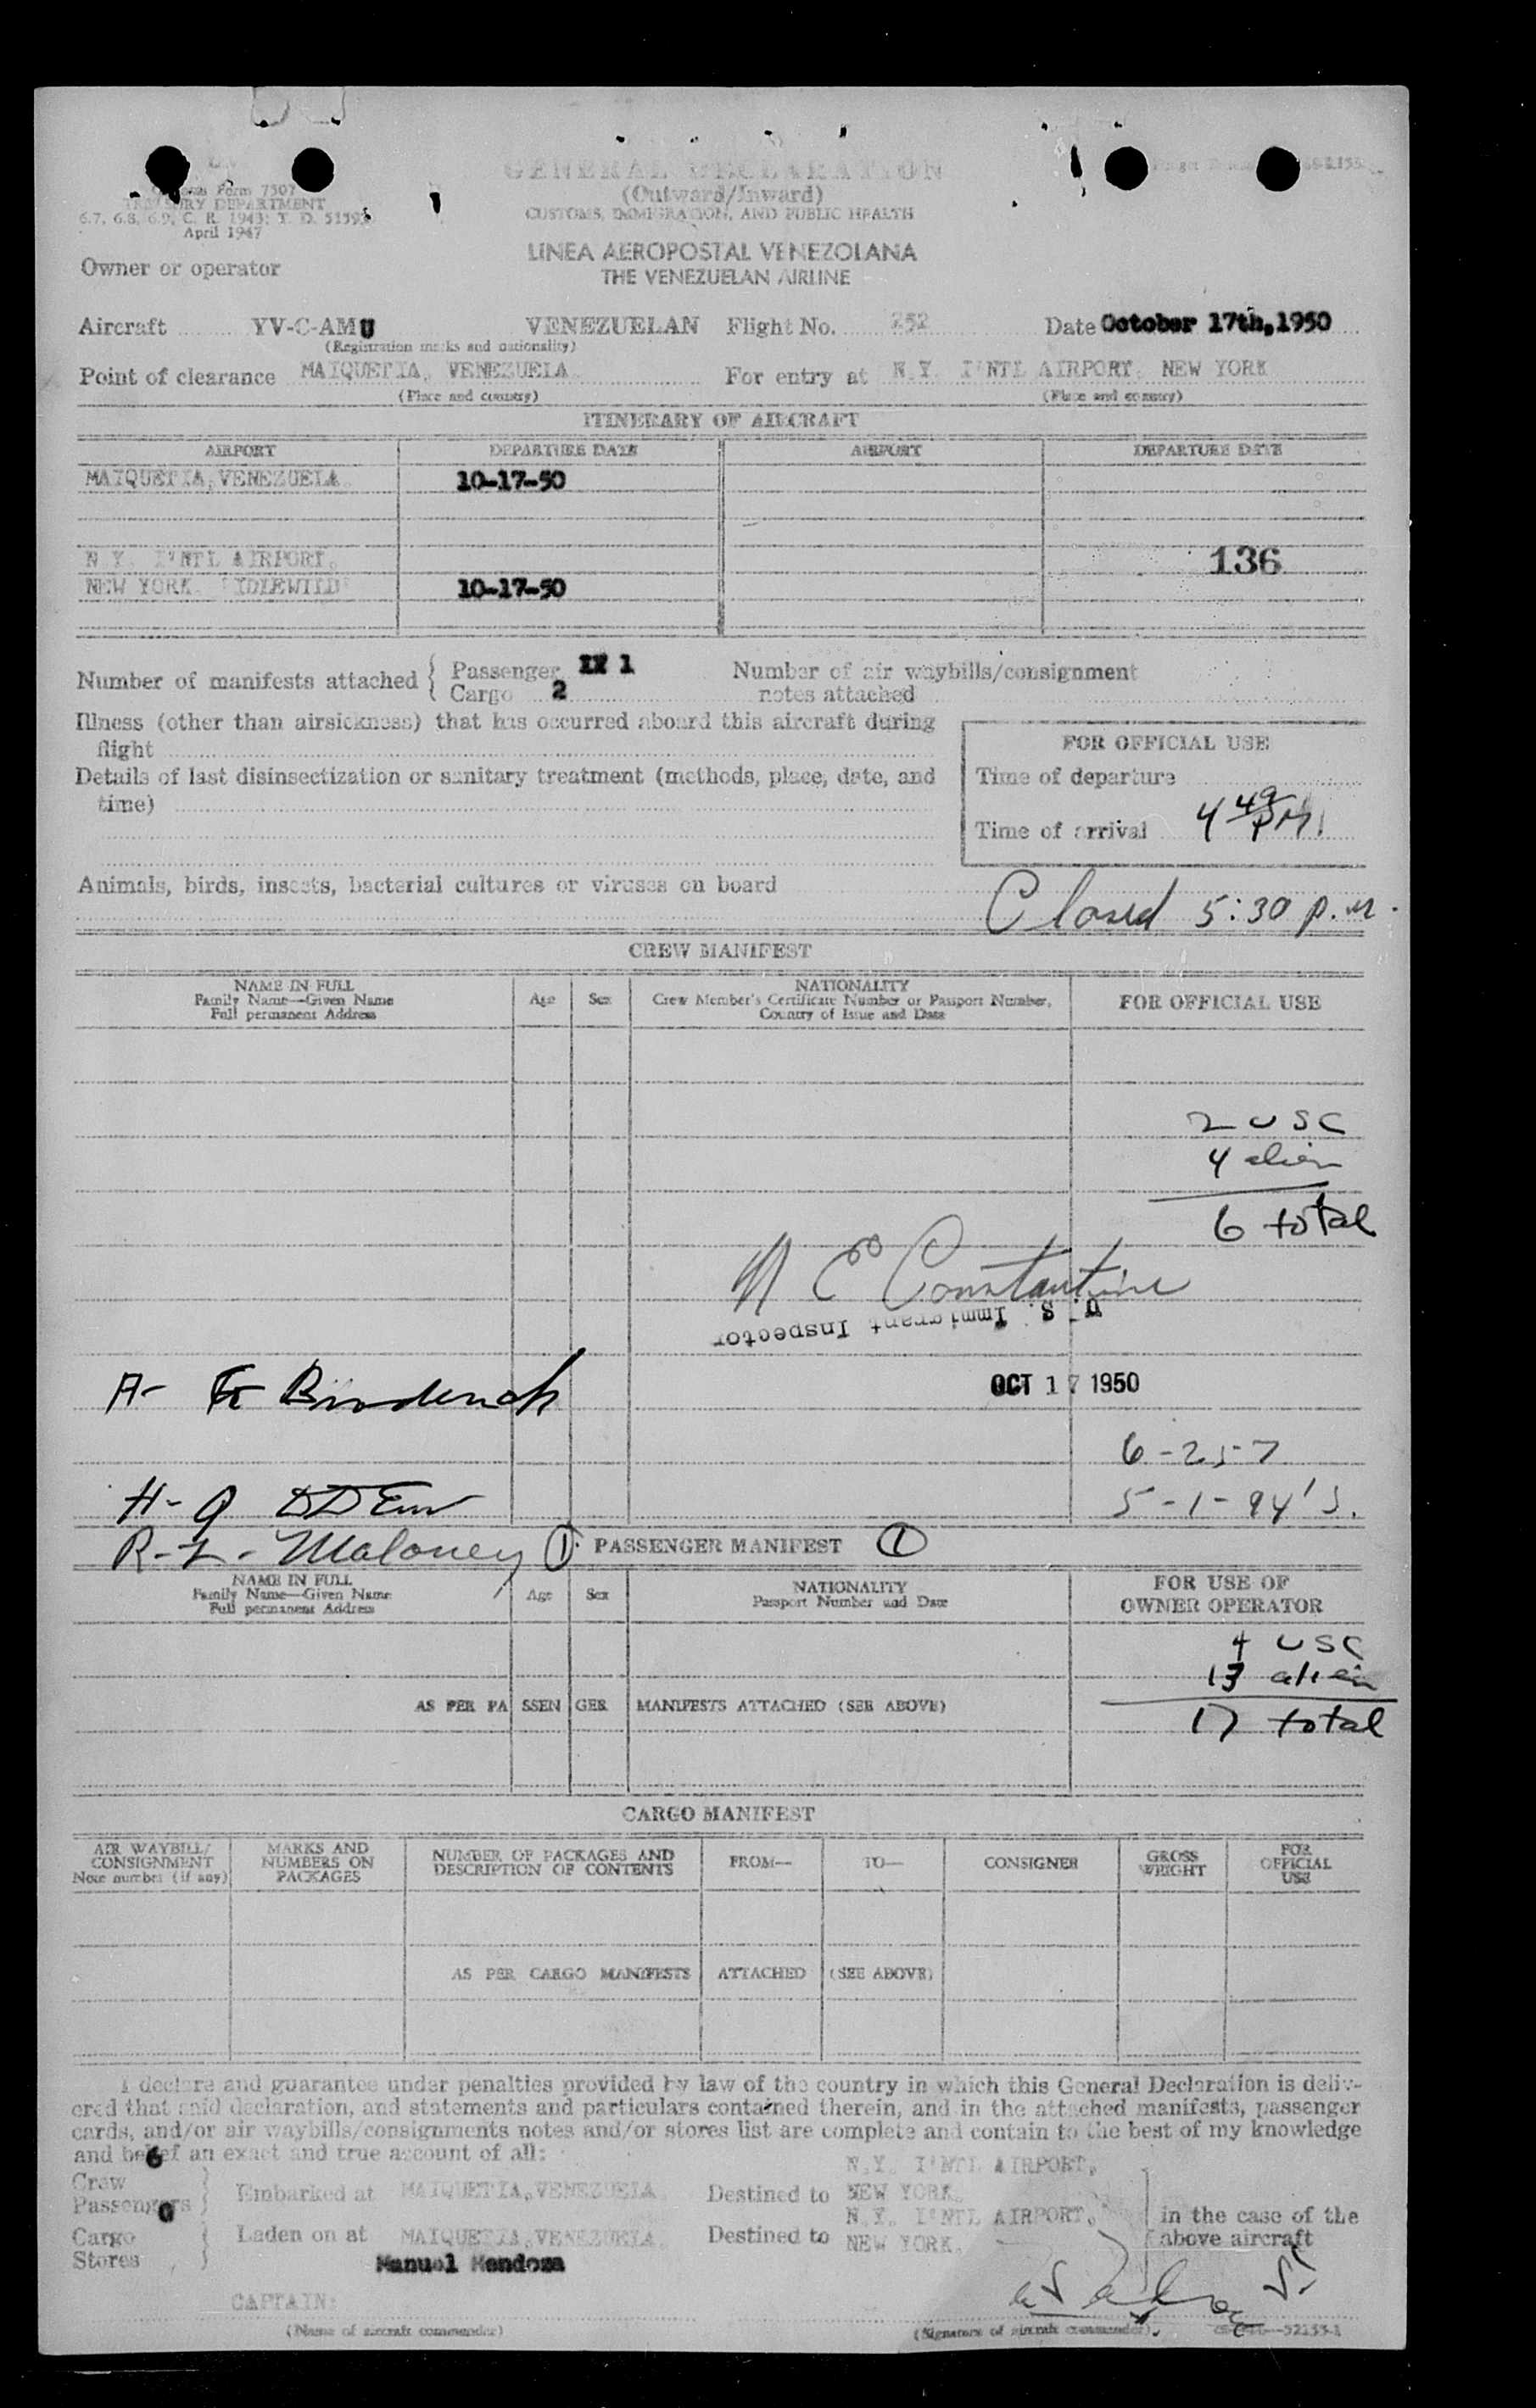 Customs Form 7507
TREASURY DEPARTMENT
6.7, 6.8, 6.9, C. R. 1943; T. D. 51595
April 1947
GENERAL DECLARATION
(Outward/Inward)
CUSTOMS, IMMIGRATION, AND PUBLIC HEALTH
LINEA AEROPOSTAL VENEZOLANA
THE VENEZUELAN AIRLINE
Owner or operator
Aircraft YV-C-AMU VENEZUELAN Flight No. 252 Date October 17th, 1950
(Registration marks and nationality)
Point of clearance MAIQUETIA, VENEZUELA. For entry at N.Y. I'NTL AIRPORT, NEW YORK
(Place and country) (Place and country)
ITINERARY OF AIRCRAFT
AIRPORT DEPARTURE DATE AIRPORT DEPARTURE DATE
MAIQUETIA, VENEZUELA. 10-17-50
N.Y. I'NTL AIRPORT, 136
NEW YORK. "IDLEWILD" 10-17-50
Number of manifests attached { Passenger 1 Number of air waybills/consignment
Cargo 2 notes attached
Illness (other than airsickness) that has occurred aboard this aircraft during
flight
FOR OFFICIAL USE
Details of last disinsectization or sanitary treatment (methods, place, date, and
time)
Time of departure
Time of arrival 4 49 PM.
Animals, birds, insects, bacterial cultures or viruses on board
Closed 5:30 p.m.
CREW MANIFEST
NAME IN FULL
Family Name—Given Name
Full permanent Address
Age Sex
NATIONALITY
Crew Member's Certificate Number or Passport Number,
Country of Issue and Date
FOR OFFICIAL USE
2 USC
4 alien
6 total
N E Constantine
U. S. Immigrant Inspector
OCT 17 1950
6-257
5-1-94's.
R-L- Maloney (1) PASSENGER MANIFEST (1)
NAME IN FULL
Family Name—Given Name
Full permanent Address
Age Sex
NATIONALITY
Passport Number and Date
FOR USE OF
OWNER OPERATOR
4 USC
13 alien
AS PER PASSENGER MANIFESTS ATTACHED (SEE ABOVE)
17 total
CARGO MANIFEST
AIR WAYBILL/
CONSIGNMENT
Note number (if any)
MARKS AND
NUMBERS ON
PACKAGES
NUMBER OF PACKAGES AND
DESCRIPTION OF CONTENTS
FROM— TO— CONSIGNER
GROSS
WEIGHT
FOR
OFFICIAL
USE
AS PER CARGO MANIFESTS ATTACHED (SEE ABOVE)
I declare and guarantee under penalties provided by law of the country in which this General Declaration is deliv-
ered that said declaration, and statements and particulars contained therein, and in the attached manifests, passenger
cards, and/or air waybills/consignments notes and/or stores list are complete and contain to the best of my knowledge
and belief an exact and true account of all:
6
Crew
Passengers 0 } Embarked at MAIQUETIA, VENEZUELA. Destined to N.Y. I'NTL AIRPORT, NEW YORK. in the case of the
Cargo
Stores } Laden on at MAIQUETIA, VENEZUELA. Destined to N.Y. I'NTL AIRPORT, NEW YORK. above aircraft
Manuel Mendoza
CAPTAIN:
(Name of aircraft commander) (Signature of aircraft commander)